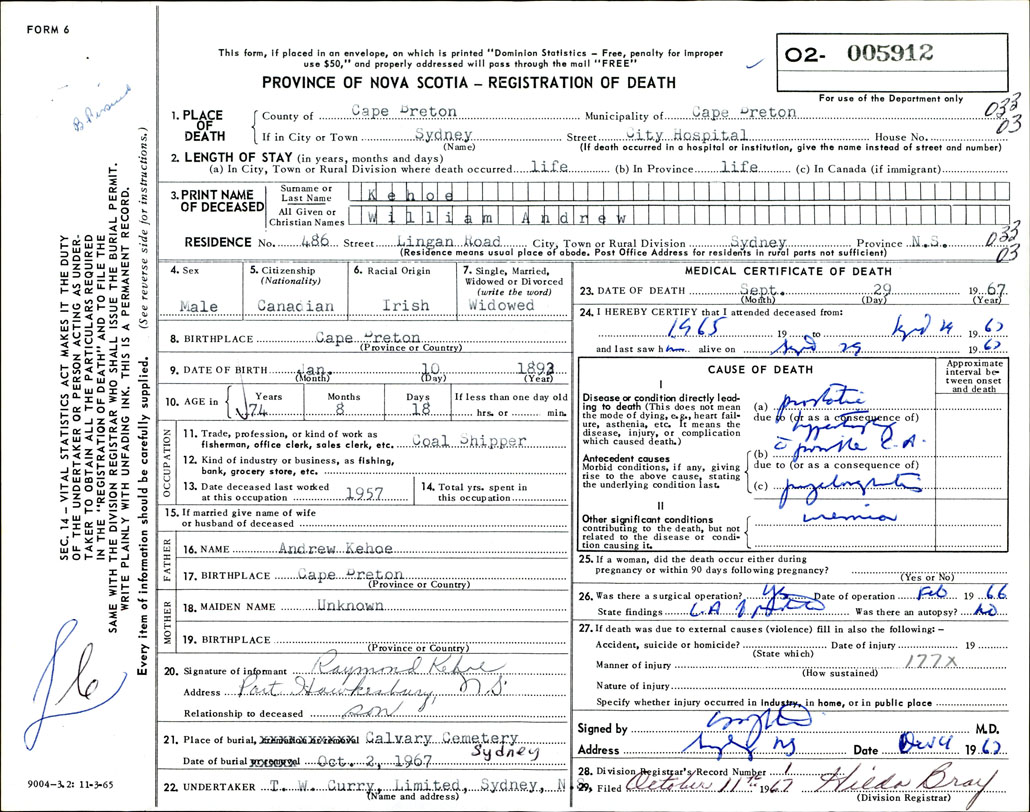 FORM 6
This form, if placed in an envelope, on which is printed "Dominion Statistics – Free, penalty for improper
use $50," and properly addressed will pass through the mail "FREE"
PROVINCE OF NOVA SCOTIA – REGISTRATION OF DEATH
02- 005912
For use of the Department only
033
03
1. PLACE OF DEATH
County of Cape Breton Municipality of Cape Breton
If in City or Town Sydney Street City Hospital House No.
(Name) (If death occurred in a hospital or institution, give the name instead of street and number)
2. LENGTH OF STAY (in years, months and days)
(a) In City, Town or Rural Division where death occurred life (b) In Province life (c) In Canada (if immigrant)
3. PRINT NAME OF DECEASED
Surname or Last Name Kehoe
All Given or Christian Names William Andrew
RESIDENCE No. 486 Street Lingan Road City, Town or Rural Division Sydney Province N.S.
(Residence means usual place of abode. Post Office Address for residents in rural parts not sufficient)
033
03
4. Sex Male
5. Citizenship (Nationality) Canadian
6. Racial Origin Irish
7. Single, Married, Widowed or Divorced (write the word) Widowed
8. BIRTHPLACE Cape Breton
(Province or Country)
9. DATE OF BIRTH Jan. 10 1893
(Month) (Day) (Year)
10. AGE in Years 74 Months 8 Days 18 If less than one day old hrs. or min.
OCCUPATION
11. Trade, profession, or kind of work as
fisherman, office clerk, sales clerk, etc. Coal Shipper
12. Kind of industry or business, as fishing,
bank, grocery store, etc.
13. Date deceased last worked
at this occupation 1957
14. Total yrs. spent in
this occupation
15. If married give name of wife
or husband of deceased
FATHER
16. NAME Andrew Kehoe
17. BIRTHPLACE Cape Breton
(Province or Country)
MOTHER
18. MAIDEN NAME Unknown
19. BIRTHPLACE
(Province or Country)
20. Signature of informant Raymond Kehoe
Address Port Hawkesbury, N.S.
Relationship to deceased son
21. Place of burial, Calvary Cemetery
Sydney
Date of burial Oct. 2, 1967
22. UNDERTAKER T. W. Curry, Limited, Sydney, N.S
(Name and address)
MEDICAL CERTIFICATE OF DEATH
23. DATE OF DEATH Sept. 29 1967
(Month) (Day) (Year)
24. I HEREBY CERTIFY that I attended deceased from:
1965 19 to 29 1967
and last saw him alive on 29 1967
CAUSE OF DEATH
Approximate interval between onset and death
I
Disease or condition directly leading
to death (This does not mean
the mode of dying, e.g., heart failure,
asthenia, etc. It means the
disease, injury, or complication
which caused death.)
(a) prostatic
due to (or as a consequence of)
hypertrophy
Antecedent causes
Morbid conditions, if any, giving
rise to the above cause, stating
the underlying condition last.
(b) c̄ possible C.A.
due to (or as a consequence of)
(c)
II
Other significant conditions
contributing to the death, but not
related to the disease or condition
causing it.
uremia
25. If a woman, did the death occur either during
pregnancy or within 90 days following pregnancy?
(Yes or No)
26. Was there a surgical operation? Yes Date of operation Feb 1966
State findings Was there an autopsy? No
27. If death was due to external causes (violence) fill in also the following: –
Accident, suicide or homicide? Date of injury 19
(State which)
Manner of injury 177X
(How sustained)
Nature of injury
Specify whether injury occurred in industry, in home, or in public place
Signed by M.D.
Address Sydney NS Date 1967
28. Division Registrar's Record Number
29. Filed October 11th 1967 Hilda Bray
(Division Registrar)
SEC. 14 – VITAL STATISTICS ACT MAKES IT THE DUTY
OF THE UNDERTAKER OR PERSON ACTING AS UNDERTAKER
TO OBTAIN ALL THE PARTICULARS REQUIRED
IN THE "REGISTRATION OF DEATH" AND TO FILE THE
SAME WITH THE DIVISION REGISTRAR WHO SHALL ISSUE THE BURIAL PERMIT.
WRITE PLAINLY WITH UNFADING INK. THIS IS A PERMANENT RECORD.
Every item of information should be carefully supplied. (See reverse side for instructions.)
9004–3.2: 11-3-65